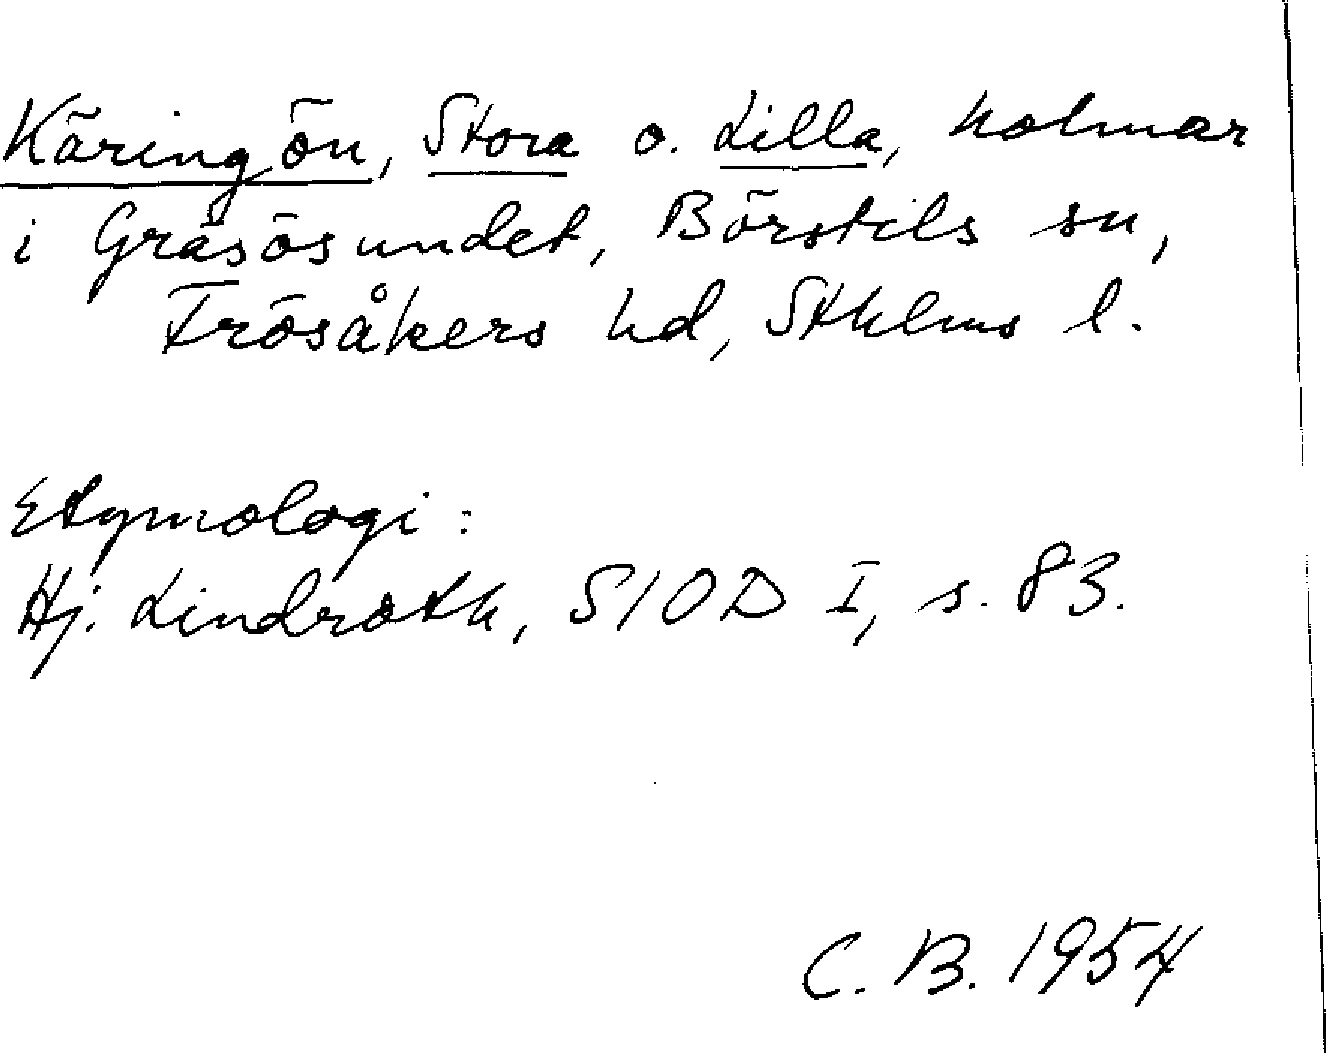 Käringön, Stora o. Lilla, holmar
i Gräsösundet, Börstils sn,
Frösåkers hd, Sthlms l.
Etymologi:
Hj. Lindroth, SIOD I, s. 83.
C. B. 1954